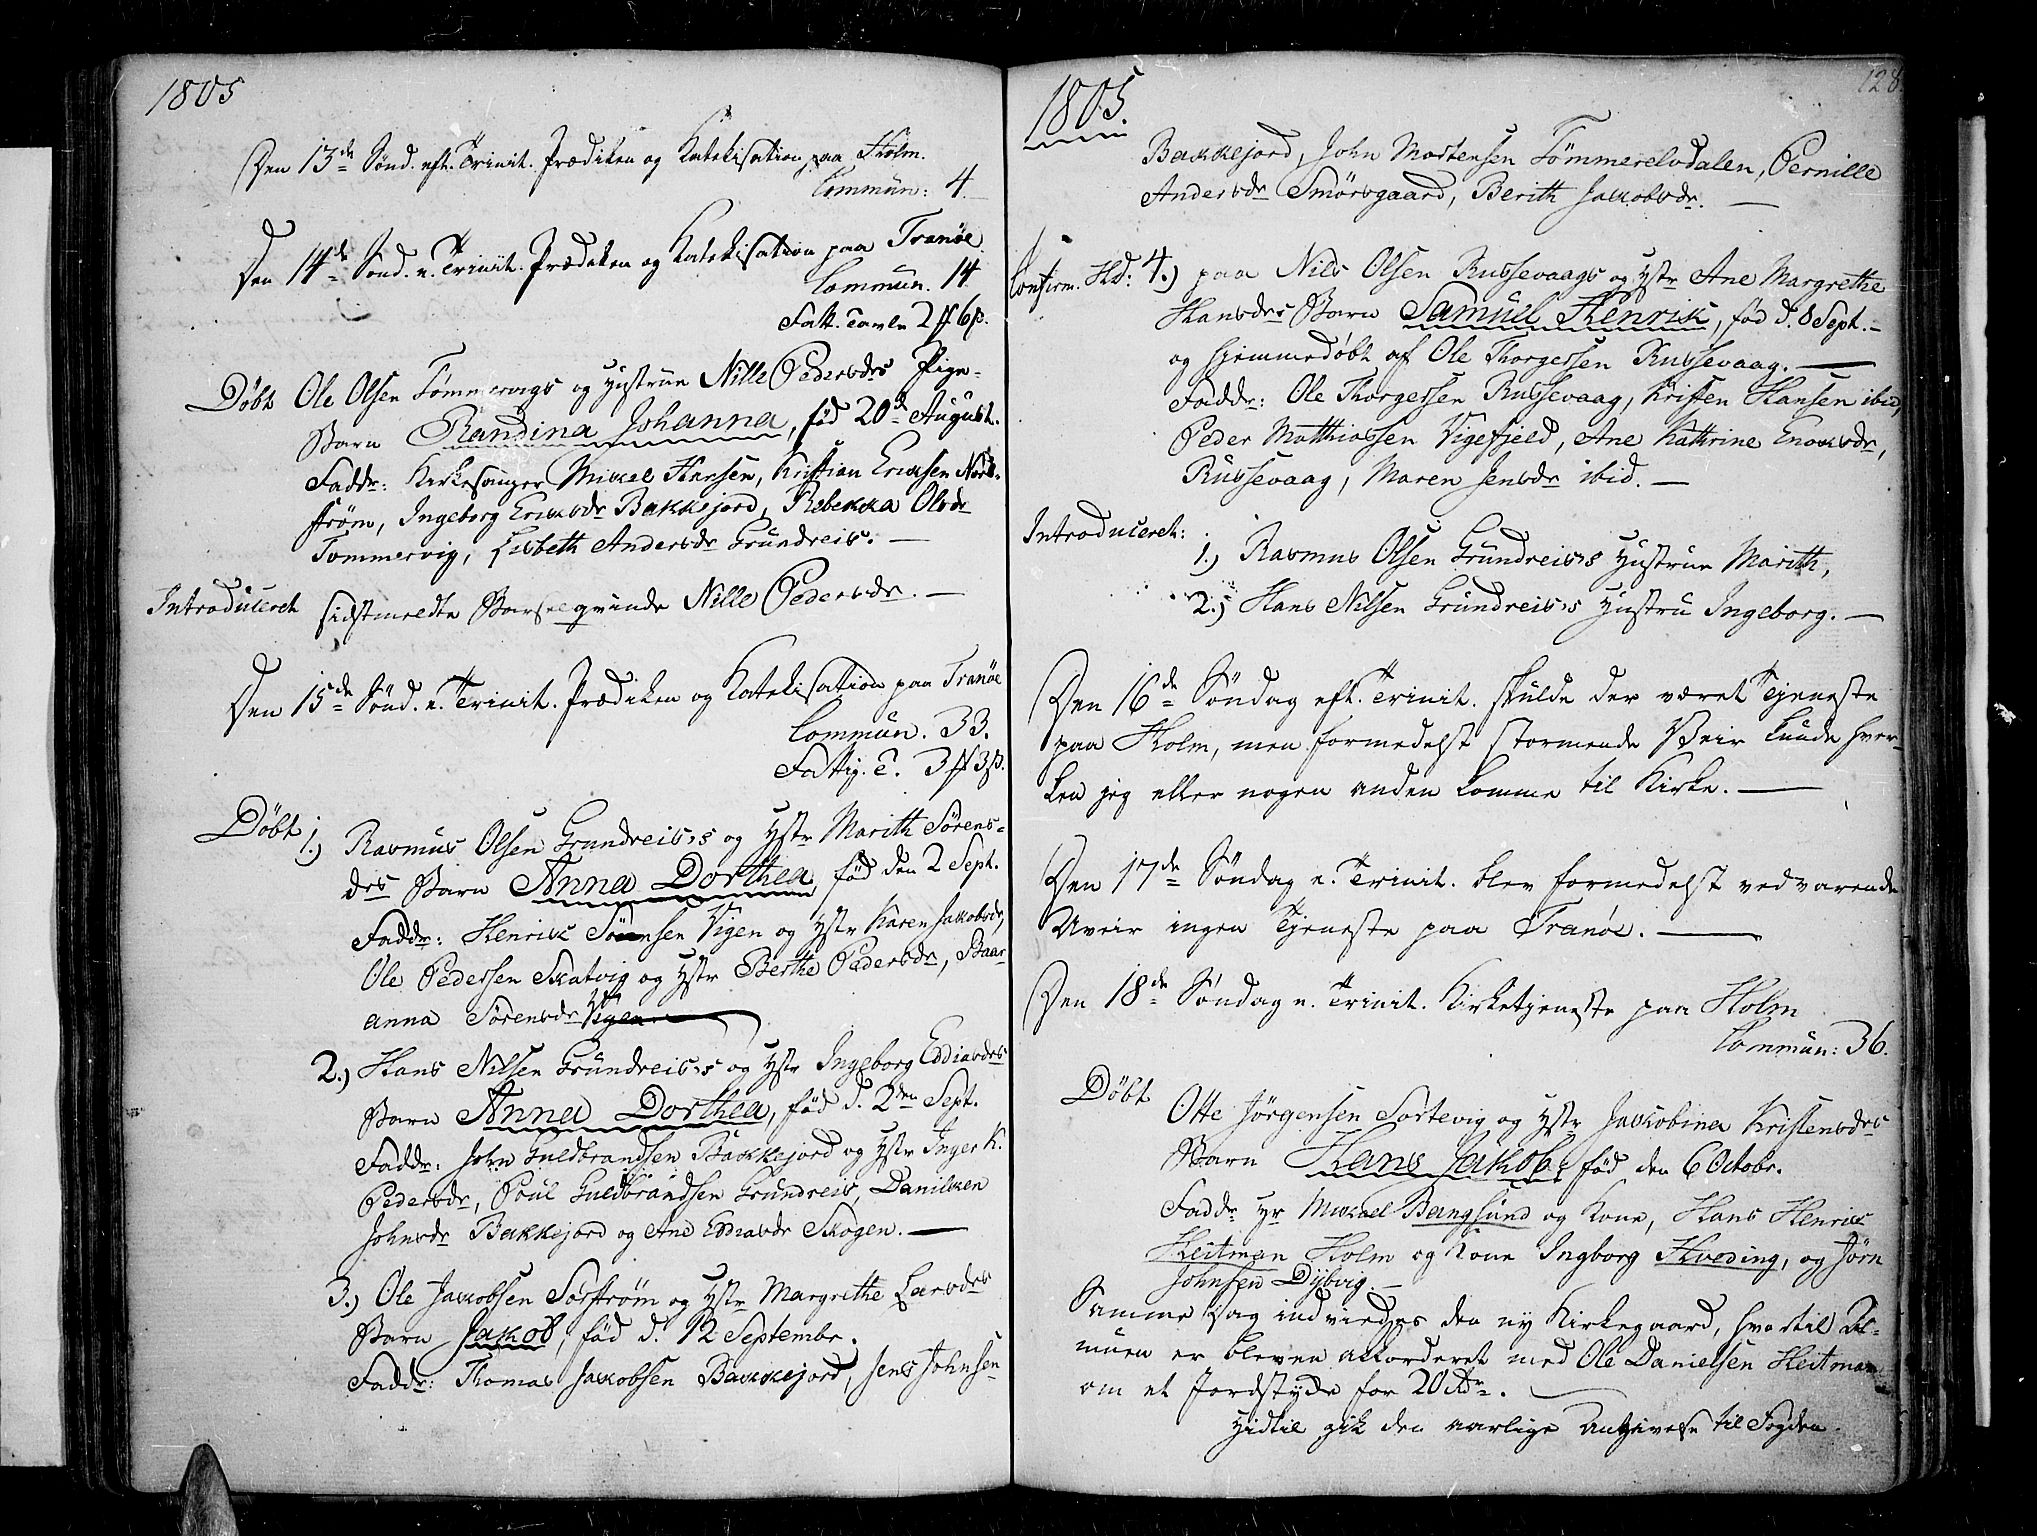 1805
Den 13de Sönd. eft. Trinit. Prædiken og Katekisation paa Holm.
Commun: 4.
Den 14de Sönd. e. Trinit. Prædiken og Katekisation paa Tranöe
Commun. 14.
Fatt. Tavle 2 # 6 s.
Döbt Ole Olsen Tömmervigs og Hustrue Nille Pedersdrs Pige-
Barn Randina Johanna, föd 20de August.
Faddr: Kirkesanger Mikel Hansen, Kristian Eriksen Nord-
ström, Ingeborg Eriksdr Bakkejord, Rebekka Olsdr
Tommervig, Lisbeth Andersdr Grundreis. —
Introduceret sidstmeldte Barselqvinde Nille Pedersdr. —
Den 15de Sönd. e. Trinit. Prædiken og Katekisation paa Tranöe
Commun. 33.
Fattig. T. 3 # 3 s.
Döbt 1.) Rasmus Olsen Grundreis's og Hstr Marith Sörens-
drs Barn Anna Dorthea, föd den 2 Sept.
Faddr: Henrik Sörensen Vigen og Hstr Karen Jakobsdr,
Ole Pedersen Skatvig og Hstr Berthe Pedersdr, Baar
anna Sörensdr Vigen —
2.) Hans Nilsen Grundreis's og Hstr Ingeborg Eddiasdrs
Barn Anna Dorthea, föd d. 2den Sept.
Faddr: John Guldbrandsen Bakkejord og Hstr Inger K.
Pedersdr, Poul Guldbrandsen Grundreis, Danilken
Johnsdr Bakkejord og Ane Eddiasdr Skogen. —
3.) Ole Jakobsen Sorström og Hstr Margrethe Larsdrs
Barn Jakob, föd d. 12 Septembr.
Faddr: Thomas Jakobsen Bakkejord, Jens Johnsen
128.
1805.
Bakkejord, John Mortensen Tömmerelvdalen, Pernille
Andersdr Smörsgaard, Berith Jakobsdr. —
Confirm. Hd: 4.) paa Nils Olsen Russevaags og Hstr Ane Margrethe
Hansdrs Barn Samuel Henrik, föd d. 8 Sept. —
og hjemmedöbt af Ole Thorgersen Russevaag. —
Faddr: Ole Thorgersen Russevaag, Kristen Hansen ibid,
Peder Matthiassen Vigefjeld, Ane Kathrine Enoksdr,
Russevaag, Maren Jensdr ibid. —
Introduceret:
1.) Rasmus Olsen Grundreis's Hustrue Marith,
2.) Hans Nilsen Grundreis's Hustru Ingeborg. —
Den 16de Söndag eft. Trinit. skulde der været Tjeneste
paa Holm, men formedelst stormende Veir kunde hver-
ken jeg eller nogen anden komme til Kirke. —
Den 17de Söndag e. Trinit. blev formedelst vedvarende
Uveir ingen Tjeneste paa Tranöe. —
Den 18de Söndag e. Trinit. Kirketjeneste paa Holm
Commun: 36.
Döbt
Otte Jörgensen Sortevig og Hstr Jakobina Kristensdrs
Barn Hans Jakob, föd den 6 Octobr.
Faddr Hr Mikael Bangsund og Kone, Hans Henrik
Heitman Holm og Kone Ingborg Hveding, og Jörn
Johnsen Dybvig. —
Samme Dag indviedes den ny Kirkegaard, hvortil Al-
muen er bleven akkorderet med Ole Danielsen Heitman
om et Jordstyke for 20 Rdr. —
Hidtil gik den aarlige Angivelse til Fogden.